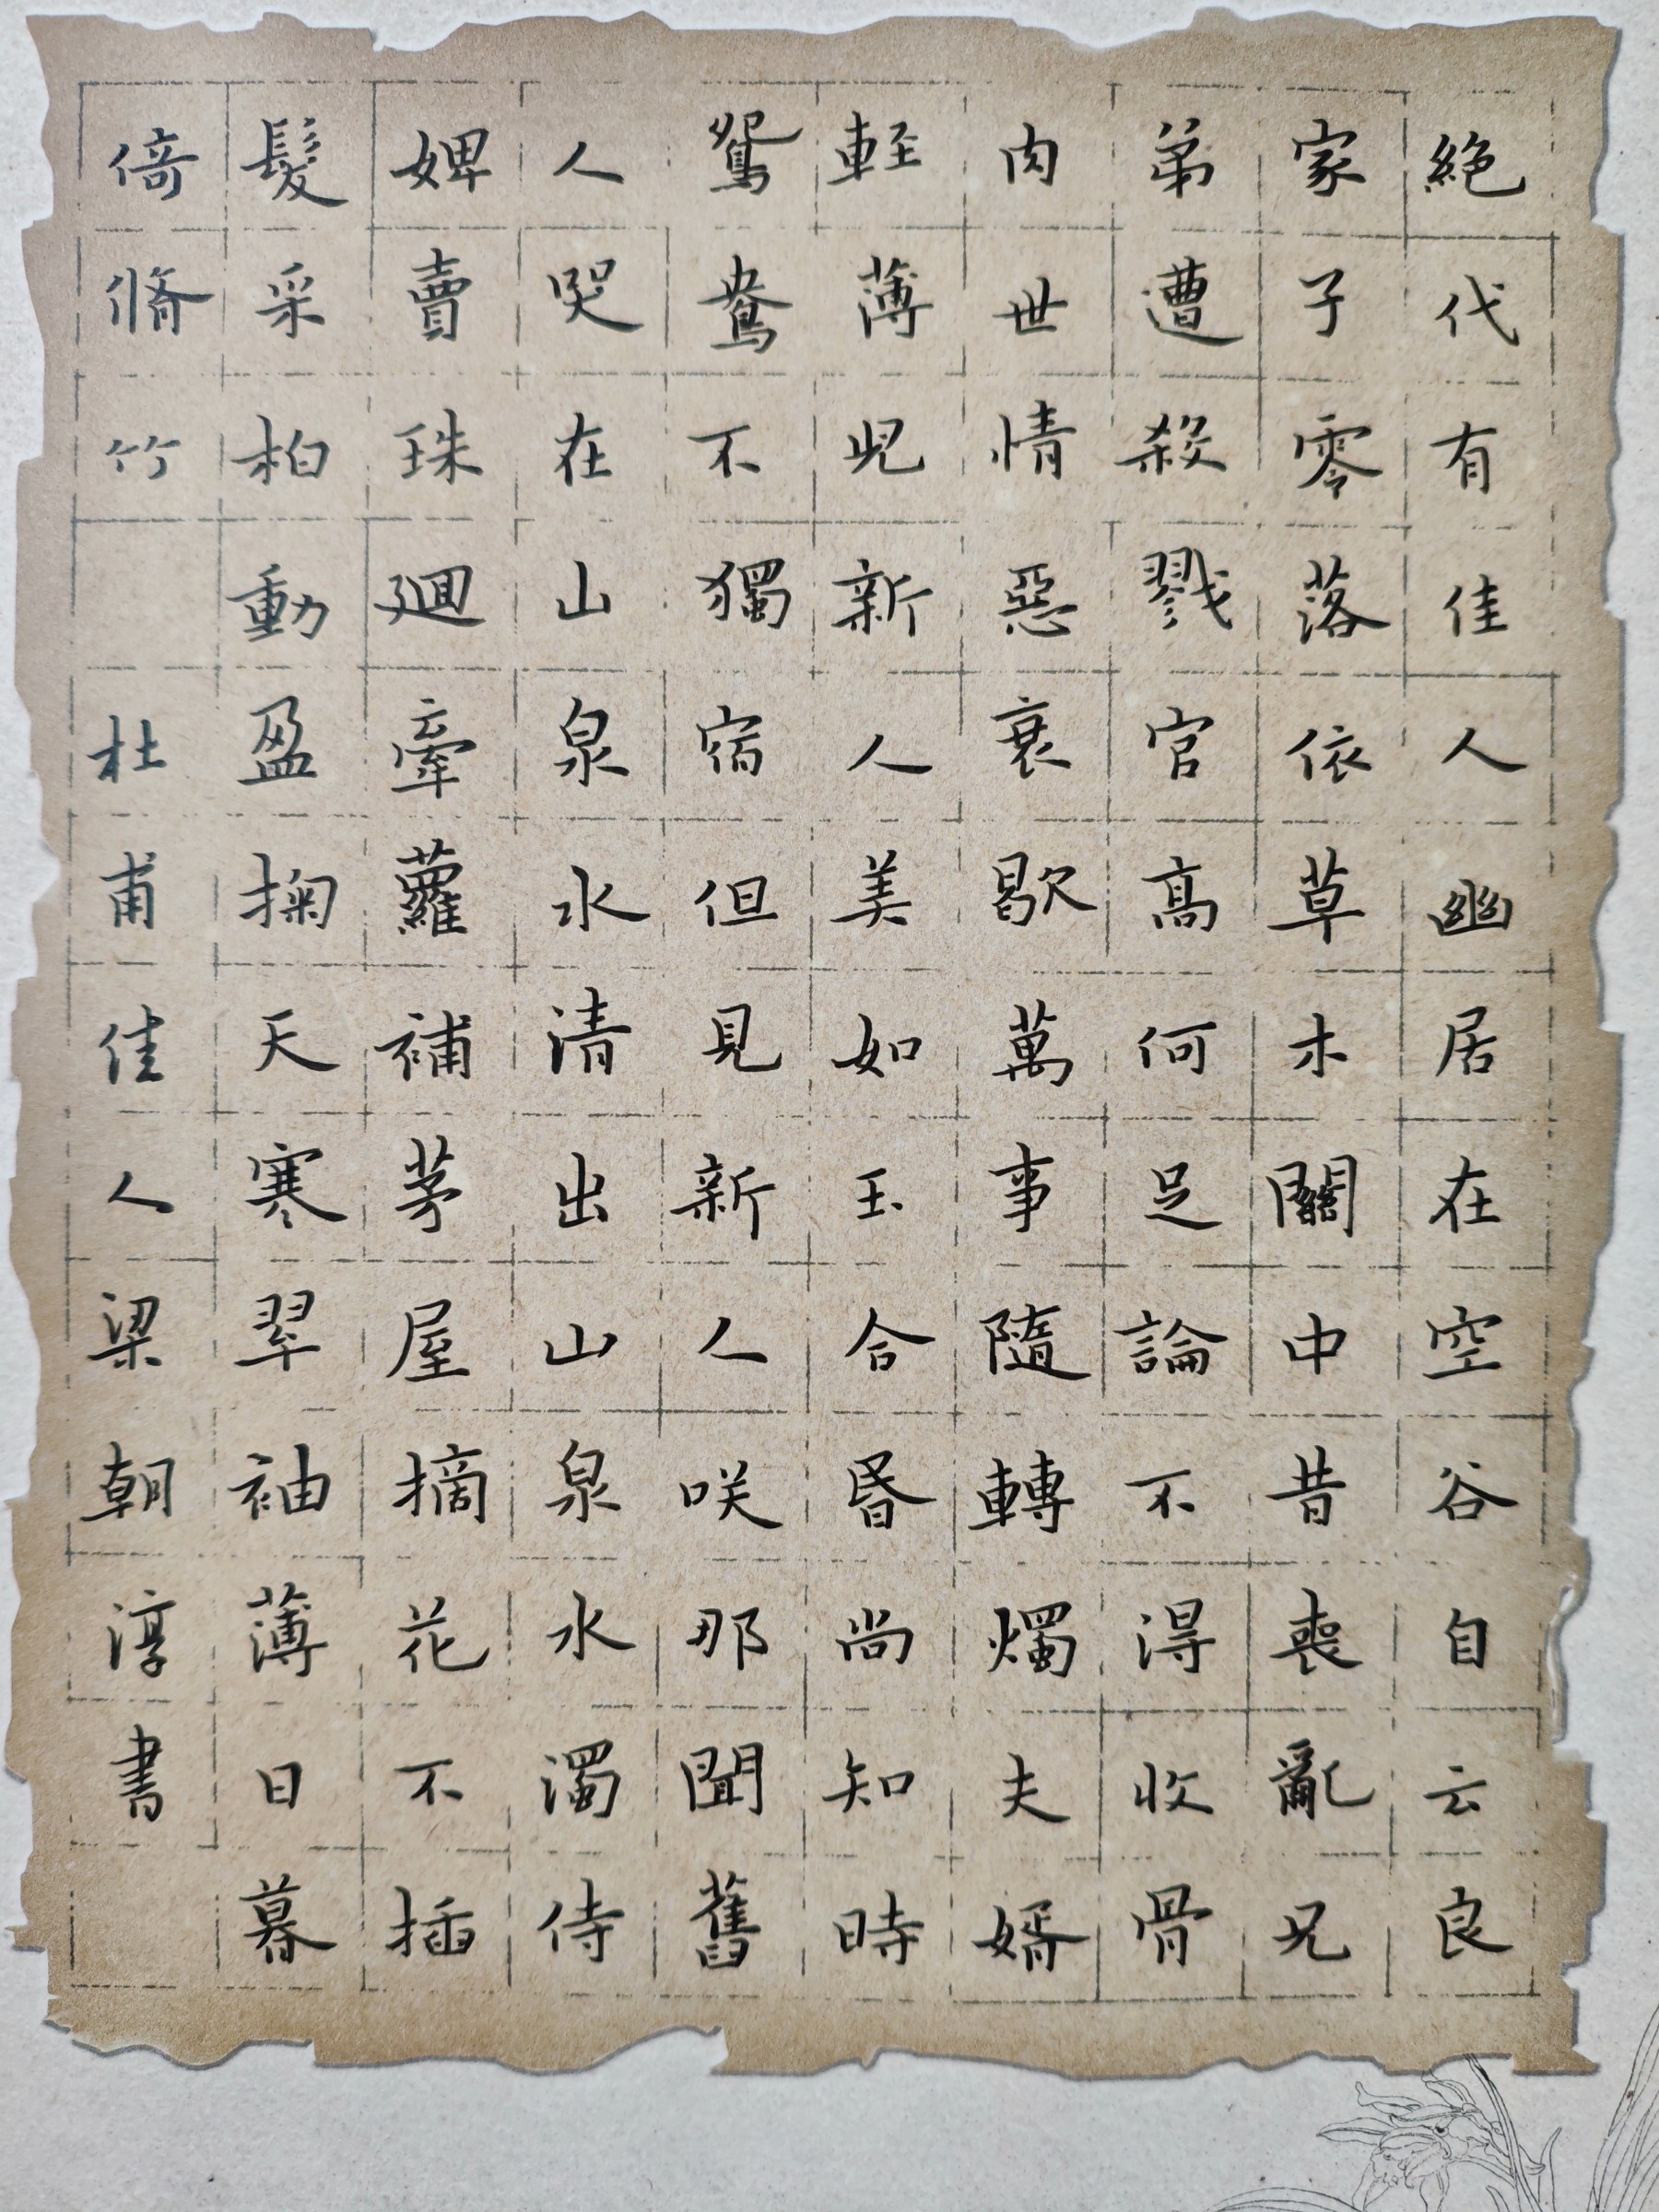 絕代有佳人幽居在空谷自云良
家子零落依草木關中昔喪亂兄
弟遭殺戮官高何足論不得收骨
肉世情惡衰歇萬事隨轉燭夫婿
輕薄兒新人美如玉合昏尚知時
鴛鴦不獨宿但見新人咲那聞舊
人哭在山泉水清出山泉水濁侍
婢賣珠迴牽蘿補茅屋摘花不插
髮采柏動盈掬天寒翠袖薄日暮
倚脩竹 杜甫佳人梁朝淳書